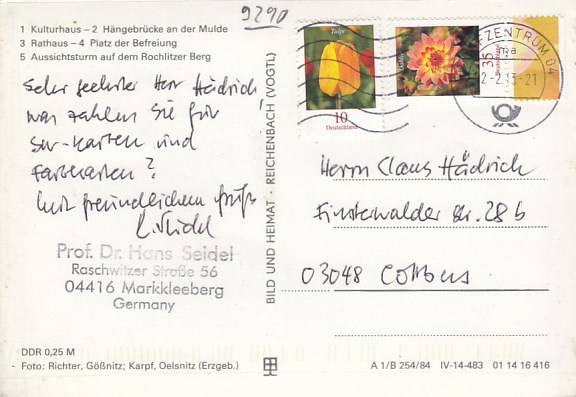 1 Kulturhaus – 2 Hängebrücke an der Mulde
3 Rathaus – 4 Platz der Befreiung
5 Aussichtsturm auf dem Rochlitzer Berg
9290
Sehr geehrter Herr Hädrich!
was zahlen Sie für
sw-Karten und
Farbkarten?
Mit freundlichem Gruß
H. Seidel
Prof. Dr. Hans Seidel
Raschwitzer Straße 56
04416 Markkleeberg
Germany
DDR 0,25 M
Foto: Richter, Gößnitz; Karpf, Oelsnitz (Erzgeb.)
BILD UND HEIMAT · REICHENBACH (VOGTL)
Tulpe
10
Deutschland
Dahlie
35
Deutschland
EZENTRUM 04
-21
Herrn Claus Hädrich
Finsterwalder Str. 28b
03048 Cottbus
A 1/B 254/84 IV-14-483 01 14 16 416